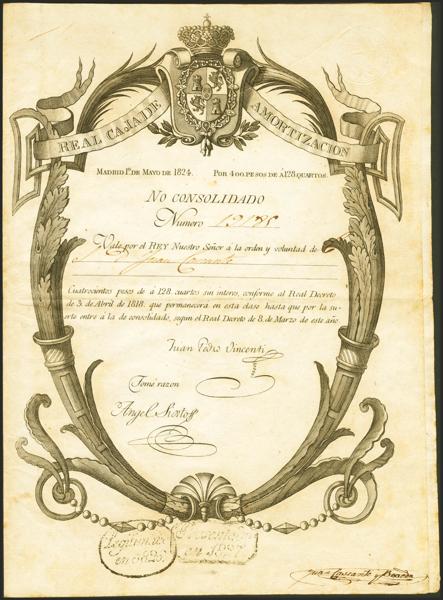 REAL CAJA DE AMORTIZACION
MADRID 1º DE MAYO DE 1824. POR 400. PESOS DE Á 128. QUARTOS.
NO CONSOLIDADO
Numero 13185
Vale por el REY Nuestro Señor á la orden y voluntad de
Juan
Cuatrocientos pesos de á 128. cuartos sin interes, conforme al Real Decreto
de 3. de Abril de 1818. que permanecerá en esta clase hasta que por la su-
erte entre á la de consolidado, segun el Real Decreto de 8. de Marzo de este año.
Juan Pedro Vincenti
Tomé razon
Angel
en
en
Juan y